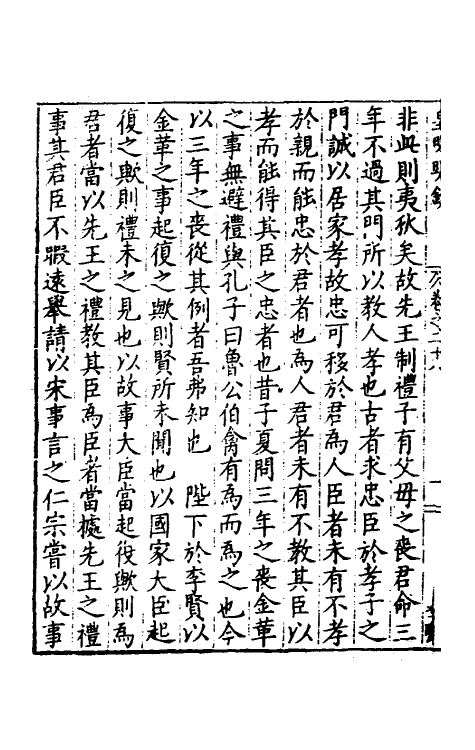 非此則夷狄矣故先王制禮子有父母之喪君命三
年不過其門所以教人孝也古者求忠臣於孝子之
門誠以居家孝故忠可移於君為人臣者未有不孝
於親而能忠於君者也為人君者未有不教其臣以
孝而能得其臣之忠者也昔子夏問三年之喪金革
之事無避禮與孔子曰魯公伯禽有為而為之也今
以三年之喪從其例者吾弗知也 陛下於李賢以
金革之事起復之歟則賢所未聞也以國家大臣起
復之歟則禮未之見也以故事大臣當起復歟則為
君者當以先王之禮教其臣為臣者當據先王之禮
事其君臣不暇遠舉請以宋事言之仁宗嘗以故事